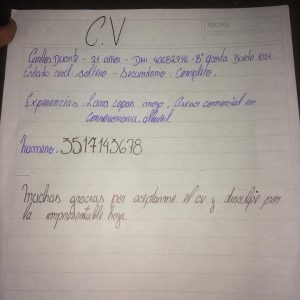 FECHA
C.V
Carlos Duarte - 21 años - Dni 40682796 - B° Costa
Estado civil: soltero - Secundario Completo.
Experiencias: Lava copas, mozo, Asesor comercial en
Concesionaria, albañil.
numero: 3517143678
Muchas gracias por aceptarme el cv y disculpe por
la impresentable hoja.